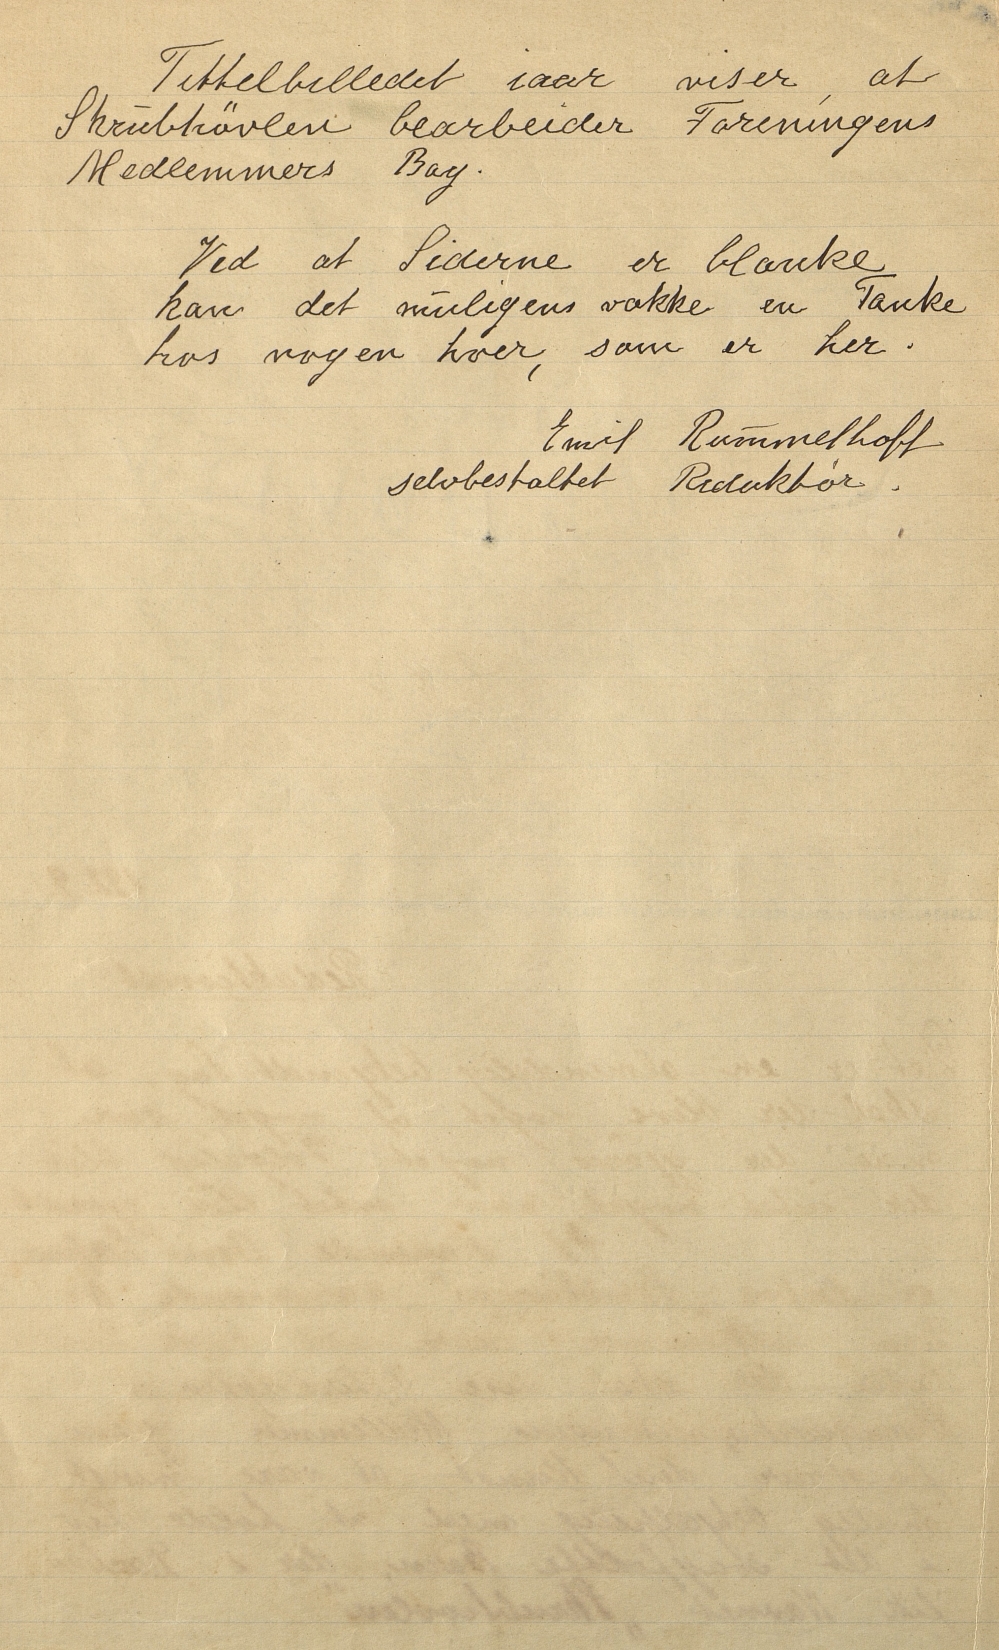 Tittelbilledet iaar viser, at
Skrubhövlen bearbeider Foreningens
Medlemmers Bag.
Ved at Siderne er blanke
kan det muligens vække en Tanke
hos nogen hver, som er her.
Emil Rummelhoff
selvbestaltet Redaktör.